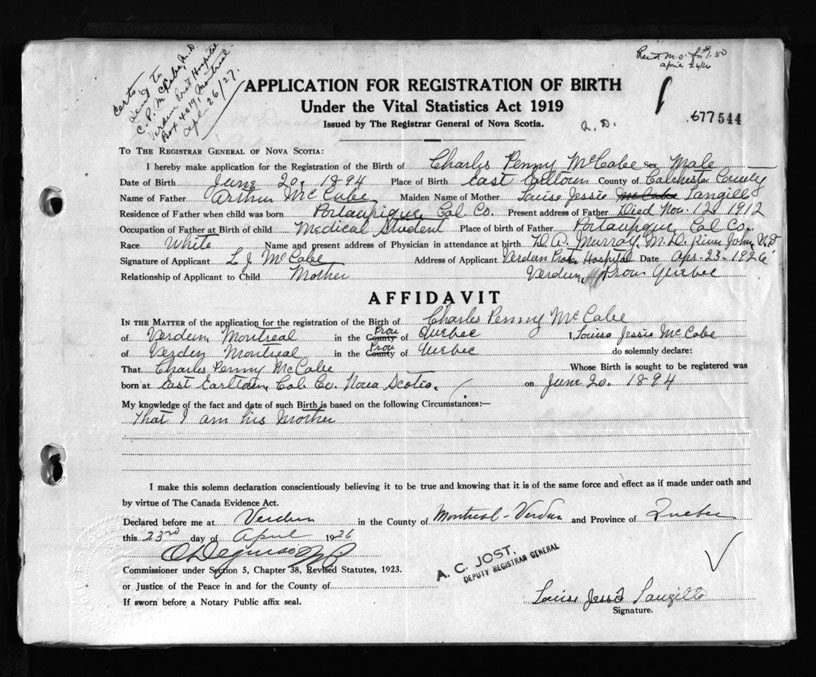 Certs.
Sent to
C. P. McCabe, M.D.
Verdun Prot Hospital
Box Montreal
Apl 26/27.
Rec'd M.O. for $1.50
April 26/26
APPLICATION FOR REGISTRATION OF BIRTH
Under the Vital Statistics Act 1919
Issued by The Registrar General of Nova Scotia.
677544
TO THE REGISTRAR GENERAL OF NOVA SCOTIA:
I hereby make application for the Registration of the Birth of Charles Penny McCabe Sex Male
Date of Birth June 20. 1894 Place of Birth East Earltown County of Colchester County
Name of Father Arthur McCabe Maiden Name of Mother Louise Jessie McCabe Langill
Residence of Father when child was born Portaupique Col Co. Present address of Father Died Nov. 12th 1912
Occupation of Father at Birth of child Medical Student Place of birth of Father Portaupique Col Co.
Race White Name and present address of Physician in attendance at birth D. A. Murray M.D. River John N.S
Signature of Applicant L J McCabe Address of Applicant Verdun Prot Hospital Date Apr. 23. 1926
Relationship of Applicant to Child Mother Verdun, Prov Quebec
AFFIDAVIT
IN THE MATTER of the application for the registration of the Birth of Charles Penny McCabe
of Verdun Montreal in the County Prov of Quebec I, Louise Jessie McCabe
of Verdun Montreal in the County Prov of Quebec do solemnly declare:
That Charles Penny McCabe Whose Birth is sought to be registered was
born at East Earltown Col. Co. Nova Scotia. on June 20. 1894
My knowledge of the fact and date of such Birth is based on the following Circumstances:—
That I am his Mother
I make this solemn declaration conscientiously believing it to be true and knowing that it is of the same force and effect as if made under oath and
by virtue of The Canada Evidence Act.
Declared before me at Verdun in the County of Montreal-Verdun and Province of Quebec
this 23rd day of April 1926
Commissioner under Section 5, Chapter 38, Revised Statutes, 1923.
or Justice of the Peace in and for the County of
If sworn before a Notary Public affix seal.
A. C. JOST,
DEPUTY REGISTRAR GENERAL
Louise Jessie Langille
Signature.